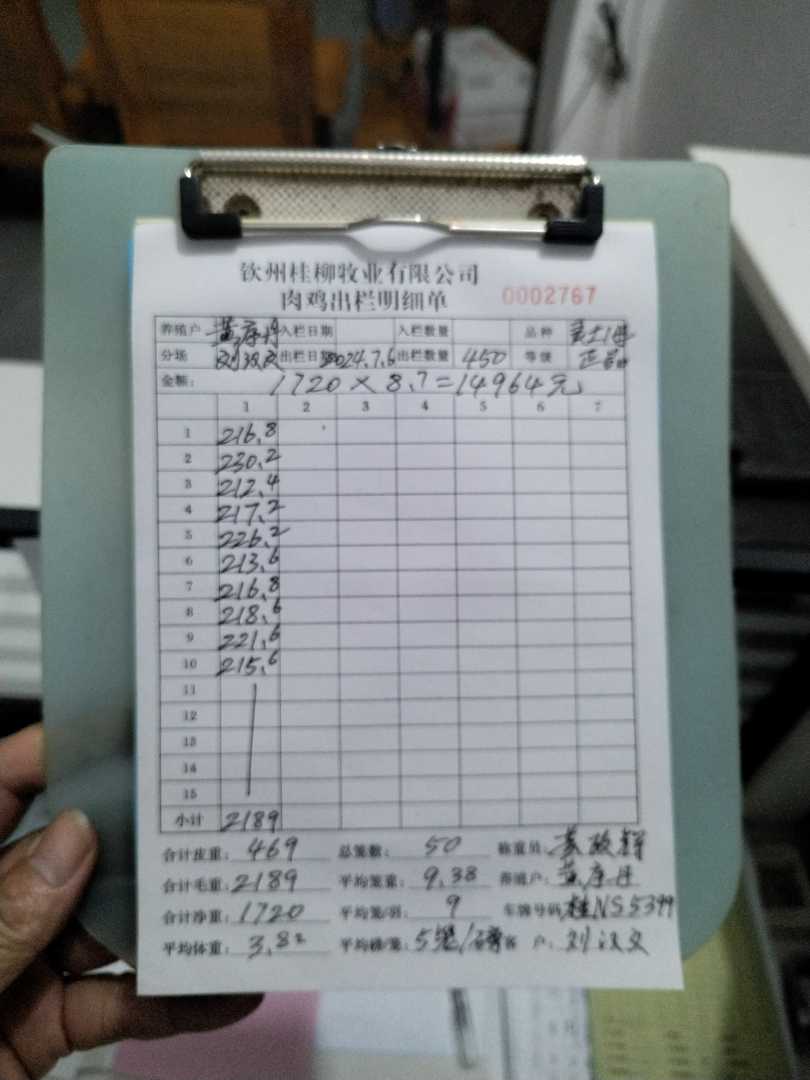 钦州桂柳牧业有限公司
肉鸡出栏明细单 0002767
养殖户 入栏日期 入栏数量 品种
分场 刘汉文 出栏日期 2024.7.6 出栏数量 450 等级 正品
金额: 1720 × 8.7 = 14964元
1 2 3 4 5 6 7
1 216.8
2 230.2
3 212.4
4 217.2
5 226.2
6 213.6
7 216.8
8 218.6
9 221.6
10 215.6
11
12
13
14
15
小计 2189
合计皮重: 469 总笼数: 50 称重员:
合计毛重: 2189 平均笼重: 9.38 养殖户:
合计净重: 1720 平均笼/羽: 9 车牌号码 桂NS5399
平均体重: 3.82 平均磅/笼: 5笼/磅 客 户: 刘汉文